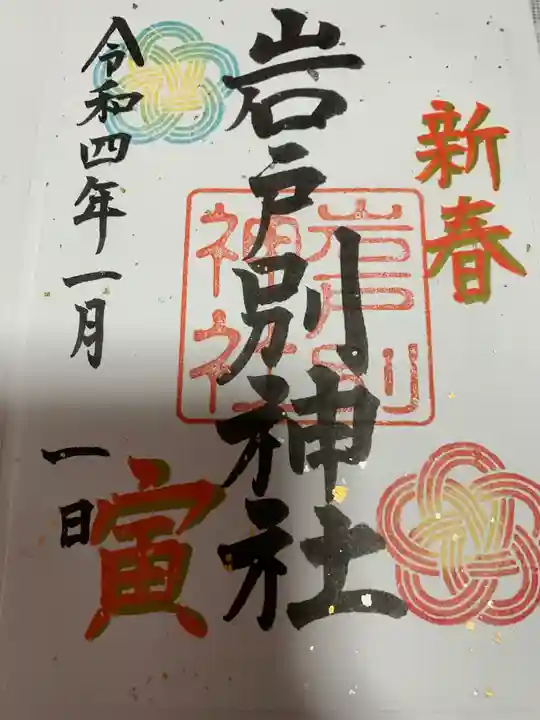 新春
岩戸別神社
岩戸別
神社
寅
令和四年一月
一日